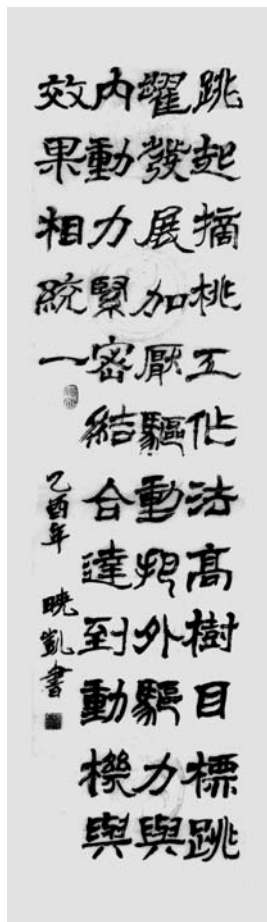 跳起摘桃工作法高樹目標跳
躍發展加厭驅動把外驅力與
內動力緊密結合達到動機與
效果相統一
乙酉年 曉凱書